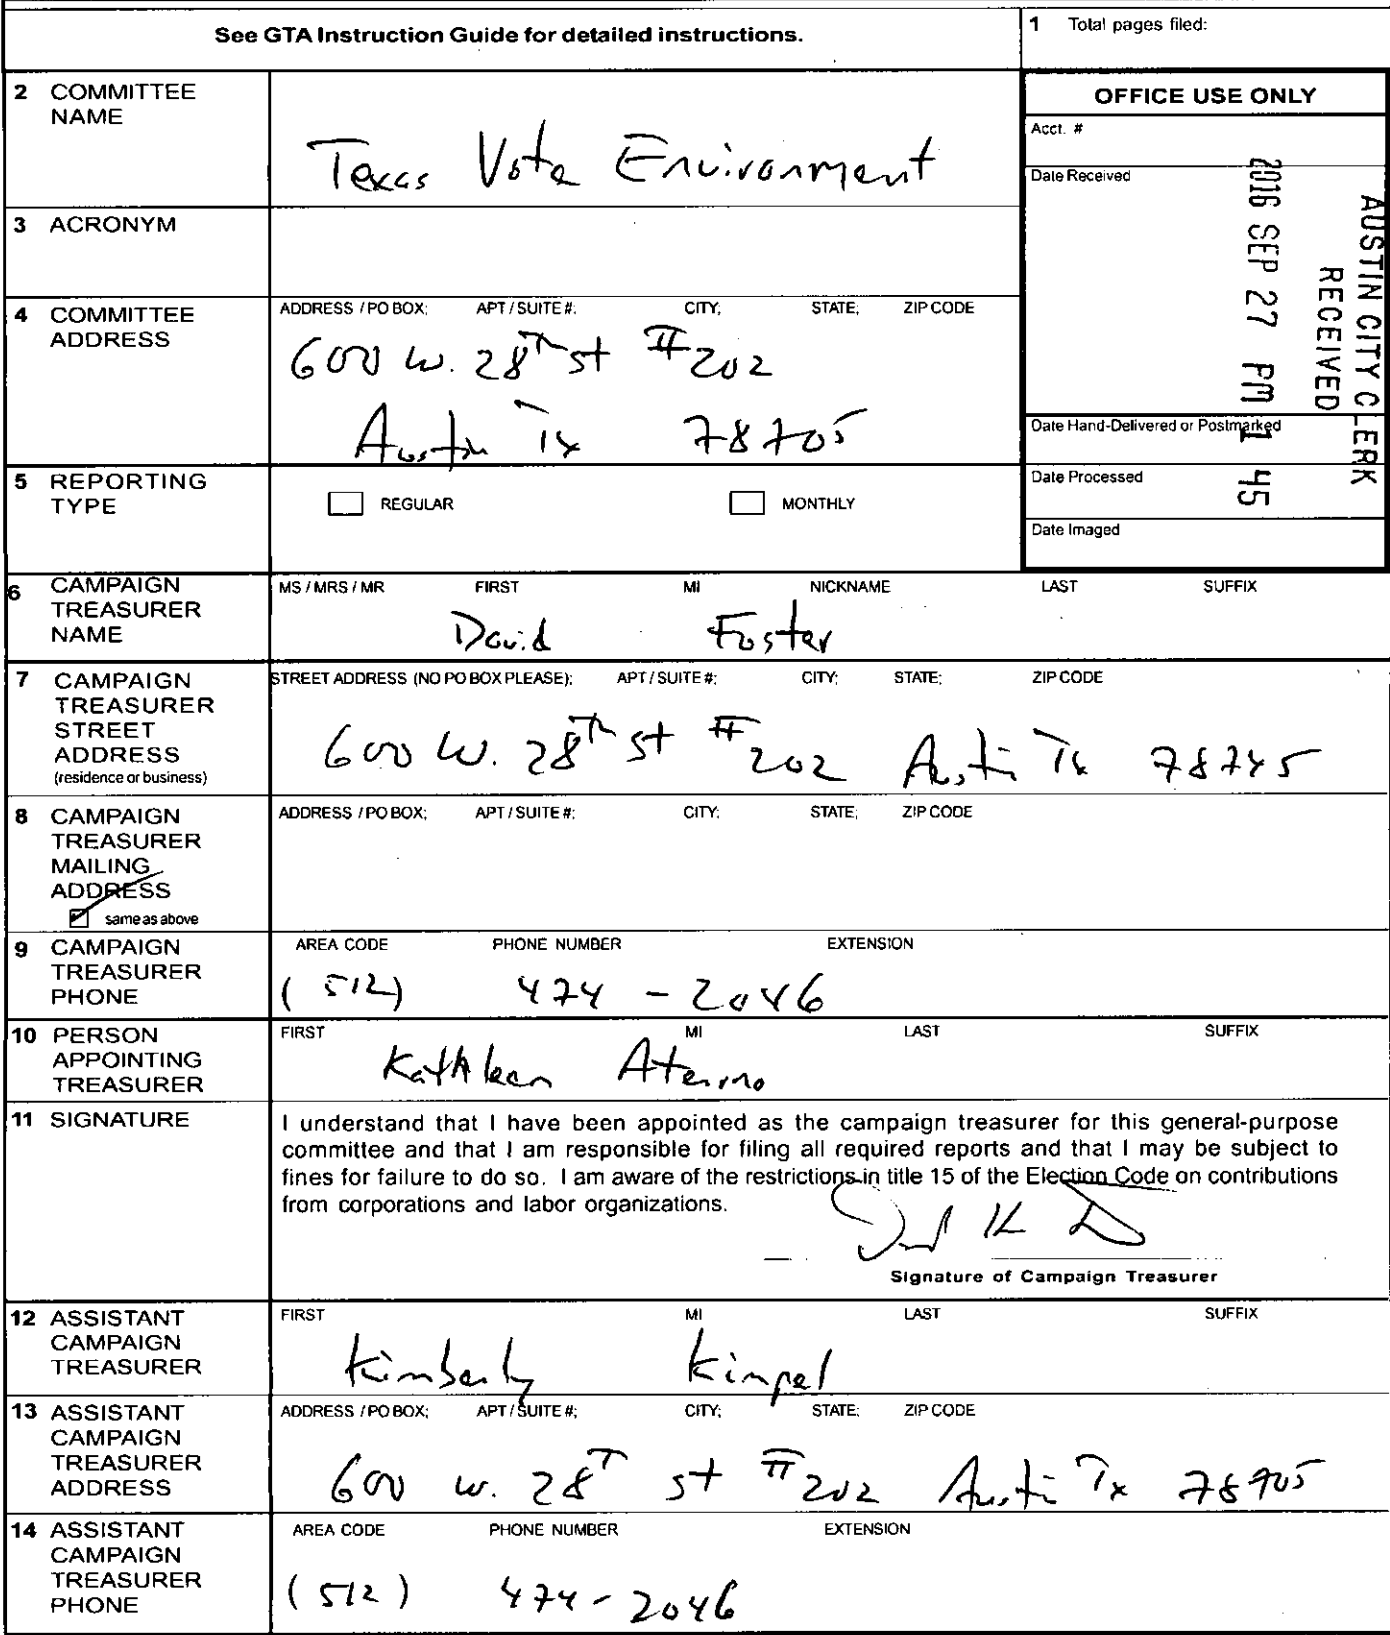 See GTA Instruction Guide for detailed instructions.
1 Total pages filed:
2 COMMITTEE NAME
Texas Vote Environment
OFFICE USE ONLY
Acct. #
Date Received
2016 SEP 27 PM 1 45
AUSTIN CITY CLERK
RECEIVED
Date Hand-Delivered or Postmarked
Date Processed
Date Imaged
3 ACRONYM
4 COMMITTEE ADDRESS
ADDRESS / PO BOX; APT / SUITE #; CITY; STATE; ZIP CODE
600 W. 28th st #202
Austin Tx 78705
5 REPORTING TYPE
REGULAR MONTHLY
6 CAMPAIGN TREASURER NAME
MS / MRS / MR FIRST MI NICKNAME LAST SUFFIX
David Foster
7 CAMPAIGN TREASURER STREET ADDRESS
(residence or business)
STREET ADDRESS (NO PO BOX PLEASE); APT / SUITE #; CITY; STATE; ZIP CODE
600 W. 28th st #202 Austin Tx 78745
8 CAMPAIGN TREASURER MAILING ADDRESS
same as above
ADDRESS / PO BOX; APT / SUITE #; CITY; STATE; ZIP CODE
9 CAMPAIGN TREASURER PHONE
AREA CODE PHONE NUMBER EXTENSION
(512) 474-2046
10 PERSON APPOINTING TREASURER
FIRST MI LAST SUFFIX
Kathleen Aterno
11 SIGNATURE
I understand that I have been appointed as the campaign treasurer for this general-purpose
committee and that I am responsible for filing all required reports and that I may be subject to
fines for failure to do so. I am aware of the restrictions in title 15 of the Election Code on contributions
from corporations and labor organizations.
Signature of Campaign Treasurer
12 ASSISTANT CAMPAIGN TREASURER
FIRST MI LAST SUFFIX
Kimberly Kimpel
13 ASSISTANT CAMPAIGN TREASURER ADDRESS
ADDRESS / PO BOX; APT / SUITE #; CITY; STATE; ZIP CODE
600 W. 28T st #202 Austin Tx 78705
14 ASSISTANT CAMPAIGN TREASURER PHONE
AREA CODE PHONE NUMBER EXTENSION
(512) 474-2046